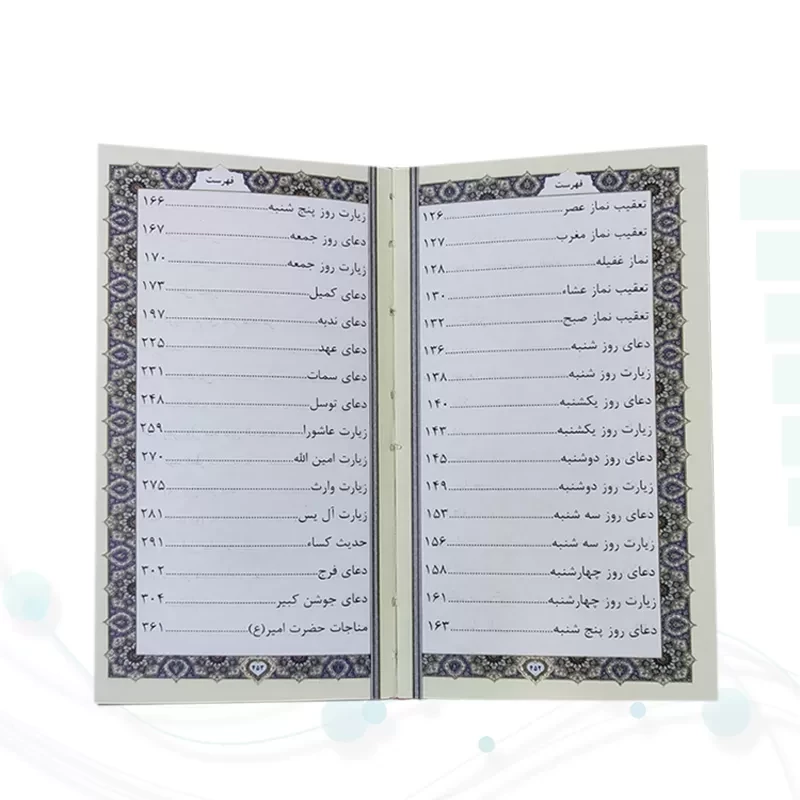 فهرست
تعقیب نماز عصر ۱۲۶
تعقیب نماز مغرب ۱۲۷
نماز غفیله ۱۲۸
تعقیب نماز عشاء ۱۳۰
تعقیب نماز صبح ۱۳۲
دعای روز شنبه ۱۳۶
زیارت روز شنبه ۱۳۸
دعای روز یکشنبه ۱۴۰
زیارت روز یکشنبه ۱۴۳
دعای روز دوشنبه ۱۴۵
زیارت روز دوشنبه ۱۴۹
دعای روز سه شنبه ۱۵۳
زیارت روز سه شنبه ۱۵۶
دعای روز چهارشنبه ۱۵۸
زیارت روز چهارشنبه ۱۶۱
دعای روز پنج شنبه ۱۶۳
فهرست
زیارت روز پنج شنبه ۱۶۶
دعای روز جمعه ۱۶۷
زیارت روز جمعه ۱۷۰
دعای کمیل ۱۷۳
دعای ندبه ۱۹۷
دعای عهد ۲۲۵
دعای سمات ۲۳۱
دعای توسل ۲۴۸
زیارت عاشورا ۲۵۹
زیارت امین الله ۲۷۰
زیارت وارث ۲۷۵
زیارت آل یس ۲۸۱
حدیث کساء ۲۹۱
دعای فرج ۳۰۲
دعای جوشن کبیر ۳۰۴
مناجات حضرت امیر(ع) ۳۶۱